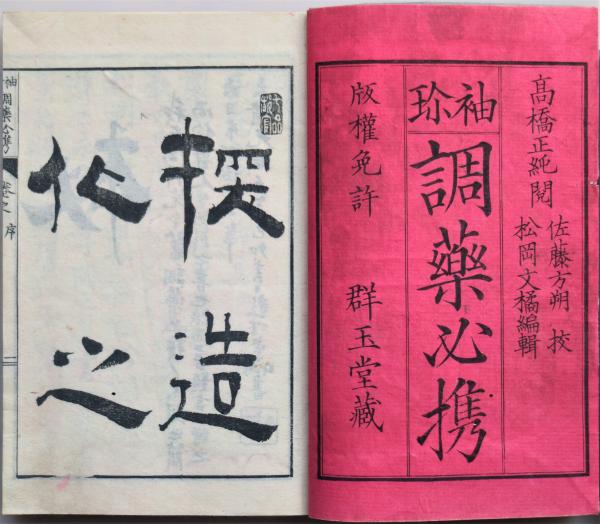 髙橋正純閲
佐藤方朔 校
松岡文橘編輯
袖珎
調藥必携
版權免許 群玉堂藏
探造
化之
調藥必携 卷之 序